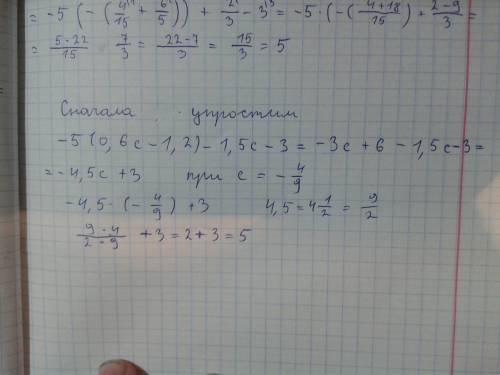 = -5 (-(4/15 + 6/5)) + 2/3 - 3 = -5 · (-(4+18/15) + 2-9/3 =
= 5·22/15 7/3 = 22-7/3 = 15/3 = 5
Сначала упростим
-5(0,6c-1,2)-1,5c-3 = -3c+6-1,5c-3=
= -4,5c+3 при c = -4/9
-4,5·(-4/9)+3 4,5=4 1/2 = 9/2
9·4/2·9 +3=2+3=5